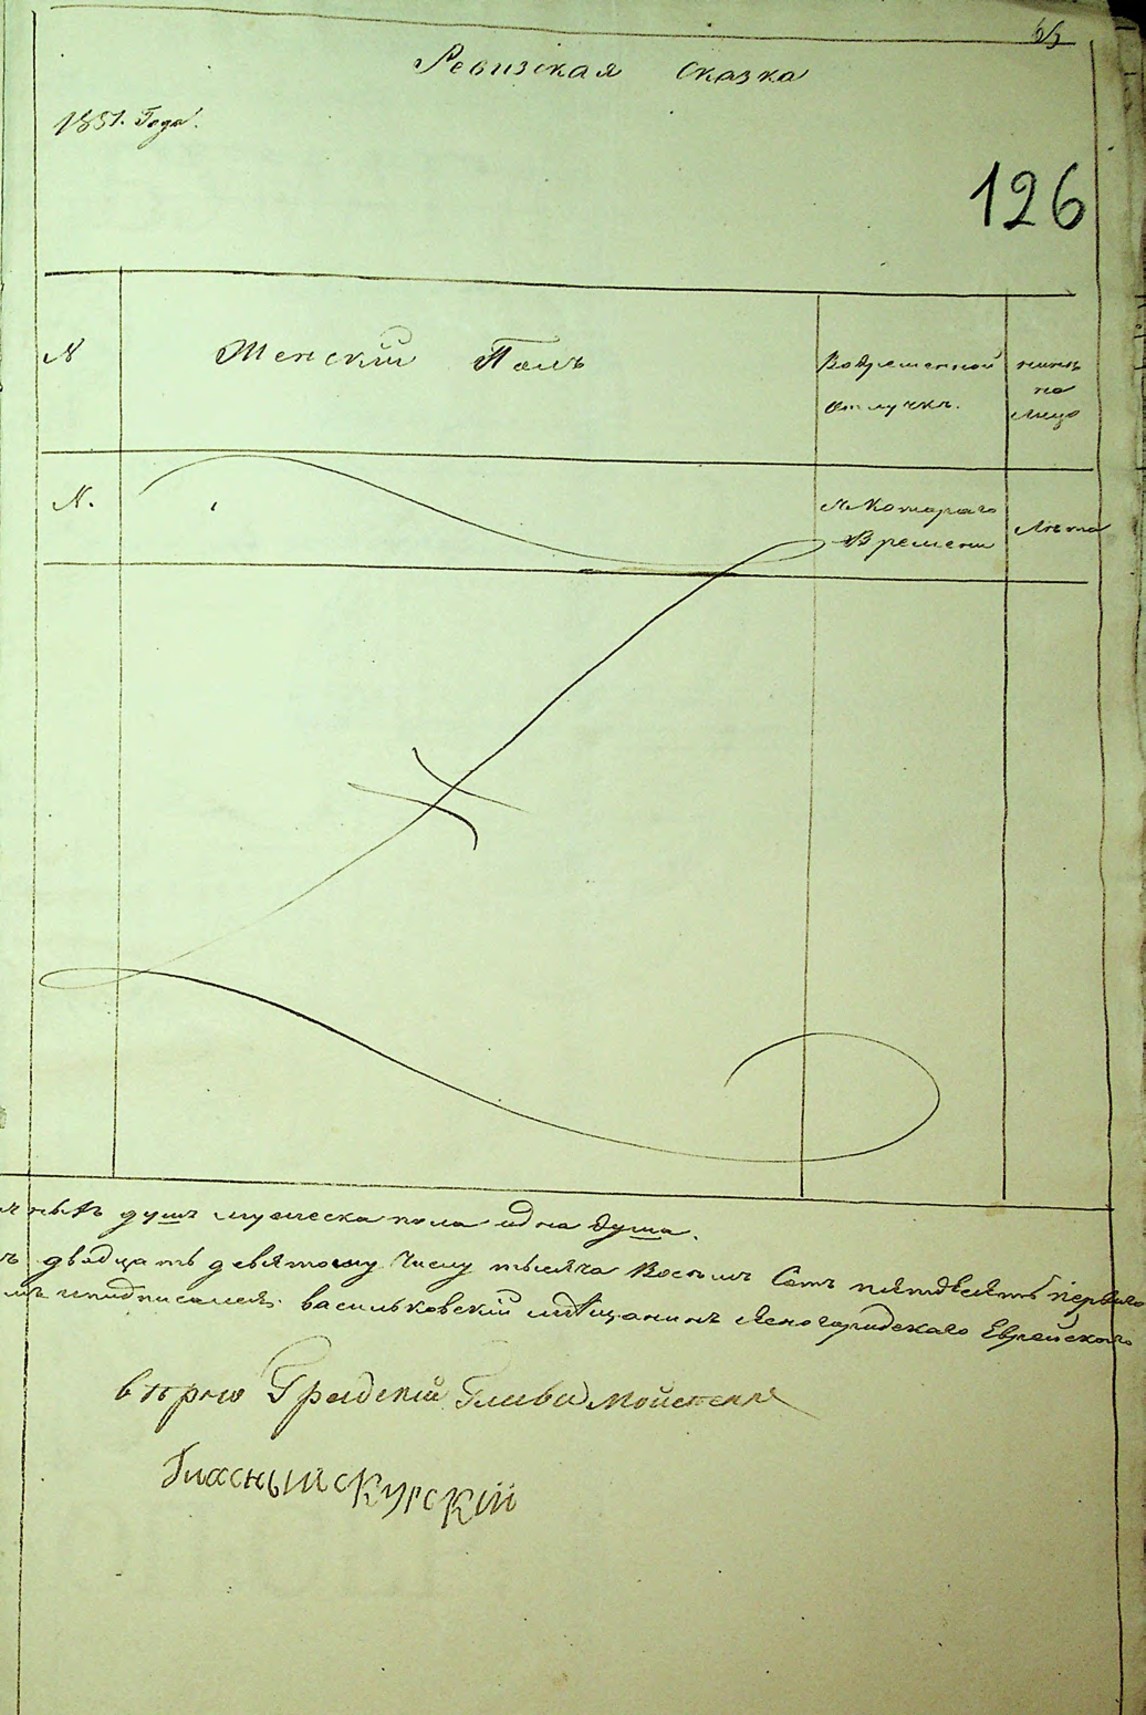 65
Ревизская Сказка
1851. Года.
126
N Женский Полъ Во временной отлучкѣ. нынѣ на лицо
N. Съ котораго Времени Лѣта
душъ мужеска пола одна душа.
двадцать девятому Числу тысяча Восемъ Сотъ пятдесятъ первого
васильковский мѣщанинъ Ясногородскаго Еврейского
Градский Глава
Гласный скурский